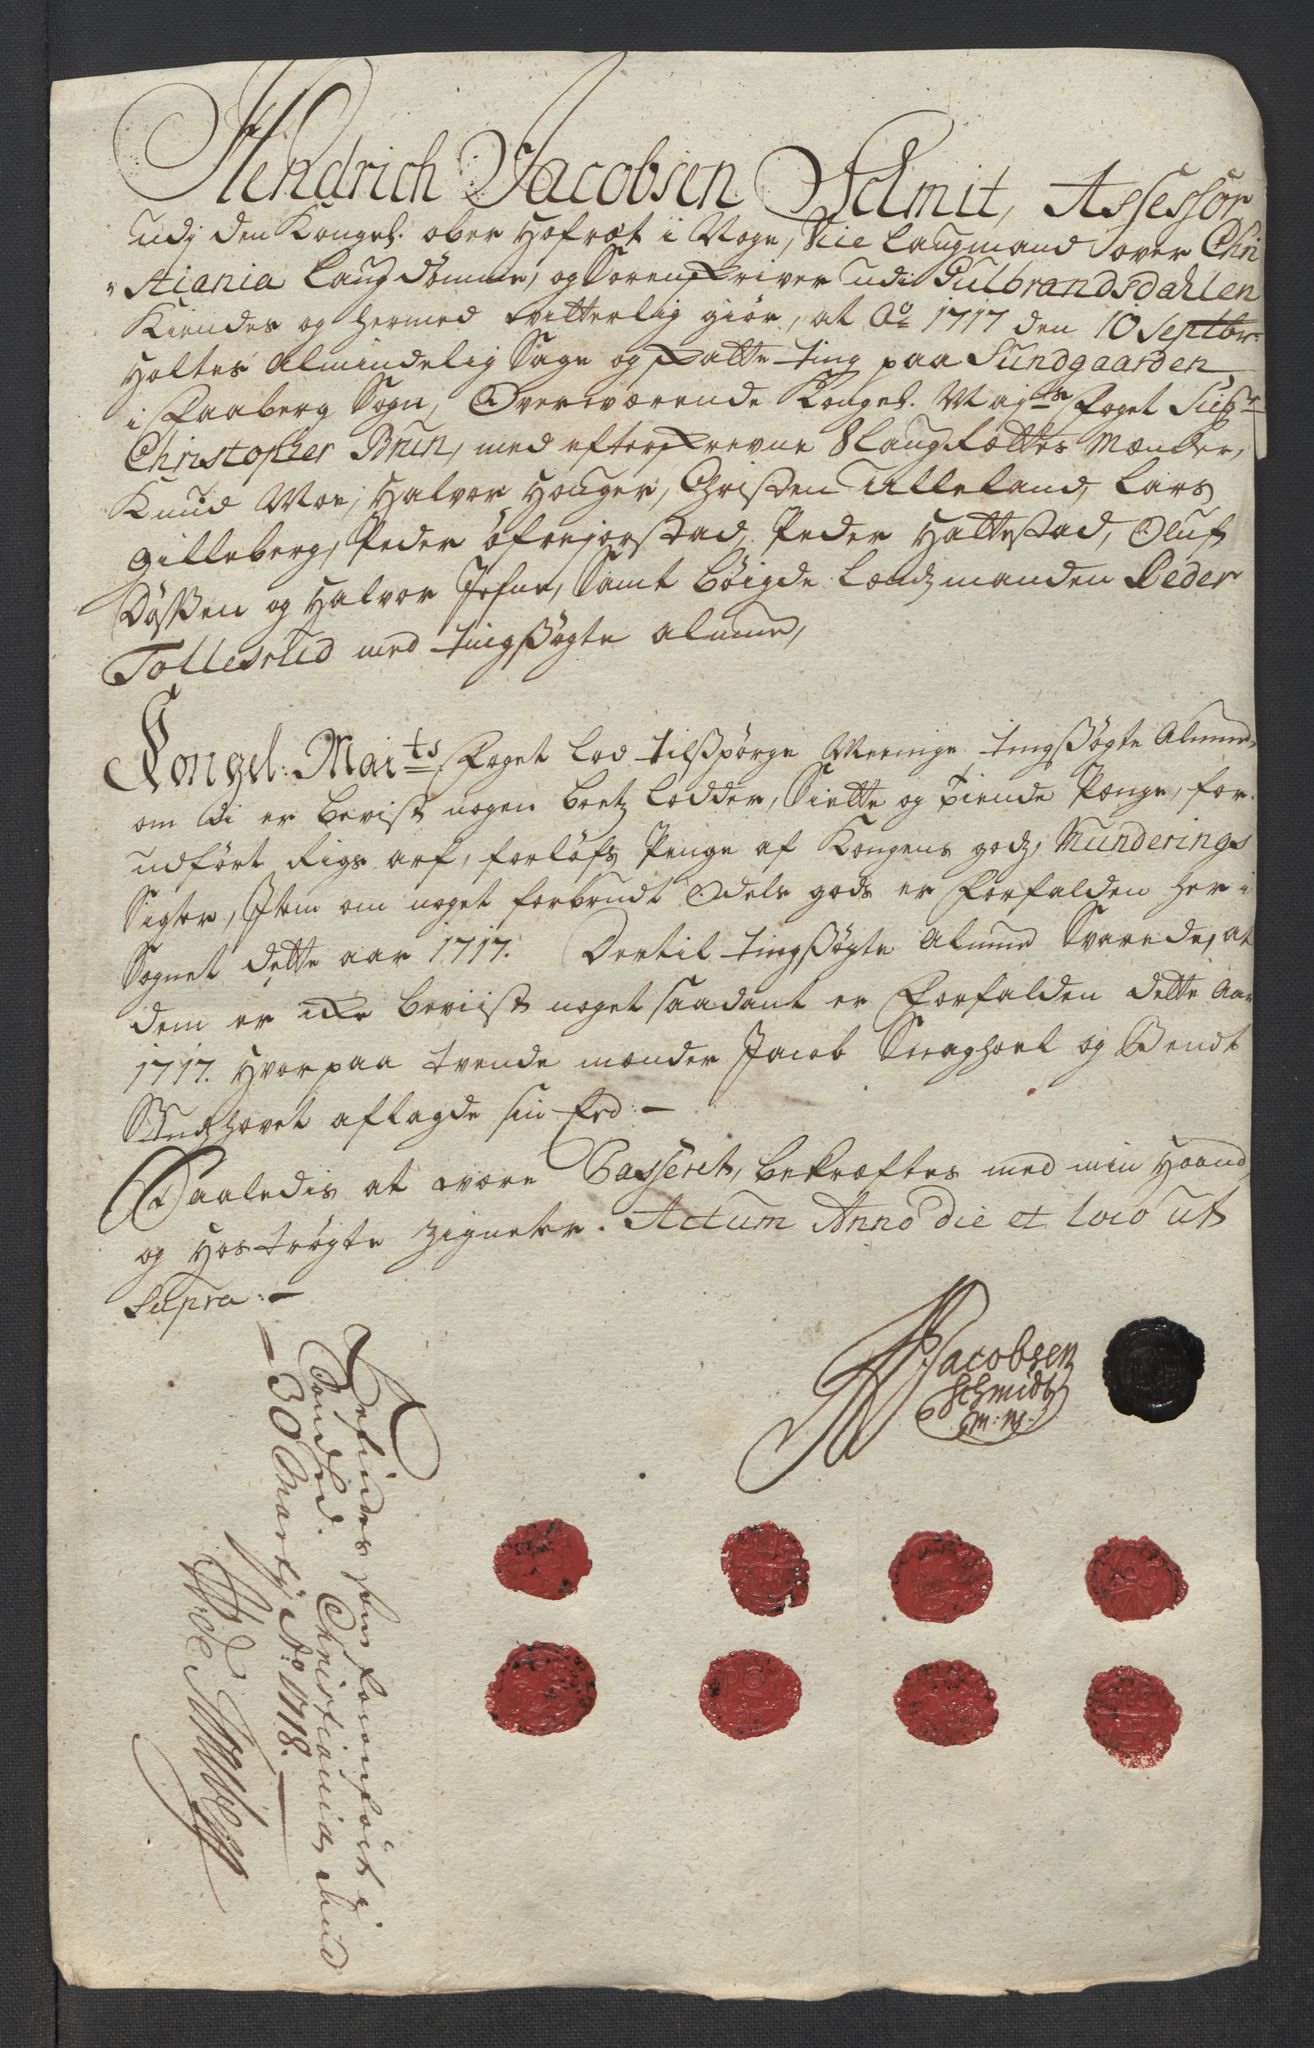 Hendrich Jacobsen Schmit, Assessor
udj den Kongel. ober Hofræt i Noge, Vice Laugmand over Chri
stiania Laugdømme, og Sorenskriver udi Gulbrandsdahlen
Kiendes og hermed vitterlig giør, at Ao 1717 den 10 Septbr:
Holtes Almindelig Sage og skatte ting paa Sundgaarden
i Faaberg Sogn, Overværende Kongel. Maj:ts Foget Sigr
Christopher Brun, med efterskrevne 8 laugfættes Mænder,
Knud Moe, Halvor Houger, Christen Ulleland, Lars
Gilleberg, Peder Øfrejorstad, Peder Hattestad, Oluf
Døssen og Halvor Jefne, Samt bøigde Lendzmanden Peder
Tollesrud med tingsøgte almue,
Kongel: Mai:ts Foget lod tilspørge Meenige tingsøgte Almue
om di er bevist nogen boetz lodder, Siette og tiende Penge, for-
udført Rigs arf, forløfs Penge af Kongens godz, Munderings
Sigter, Item om noget forbrudt Odels gods er forfalden her i
Sognet dette aar 1717. Dertil tingsøgte Almue Svarede, at
dem er icke beviist noget saadant er forfalden dette Aar
1717. Hvorpaa tvende mænder Jacob Smeghoel og Bendt
hovet aflagde sin Eed:
Saaledis at være Passeret, bekræftes med min Haand,
og Hostrøgte Zigneter. Actum Anno die et loco ut
supra:
H Jacobsen
Schmidt
m: n:
Befindes saa forrenfört i
Christiania Stifd
30 Martij Ao 1718.